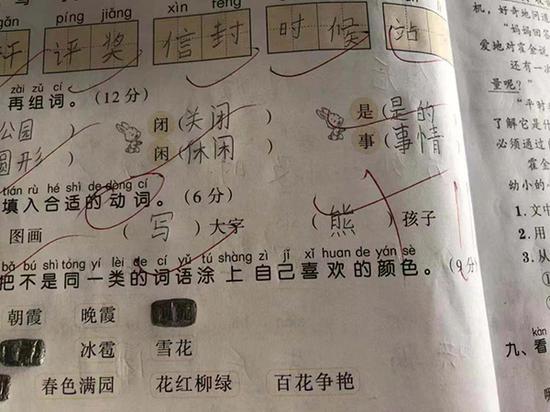 píng jiǎng xìn fēng
评 评奖 信封 时候 站
zài zǔ cí
再组词。(12分)
公园) 闭(关闭) 是(是的)
圆形) 闲(休闲) 事(事情)
tián rù hé shì de dòng cí
填入合适的动词。(6分)
图画 (写)大字 (熊)孩子
bǎ bú shì tóng yí lèi de cí yǔ tú shàng zì jǐ xǐ huan de yán sè
把不是同一类的词语涂上自己喜欢的颜色。(9分)
朝霞 晚霞
冰雹 雪花
春色满园 花红柳绿 百花争艳
机,好奇地问道
"妈妈回答
爱地对霍金说
还有一次
量呢?"
"平时
了解它是什
必须通过(
霍金
幼小的
1.文中
2.用
3.从
①
kàn
九、看